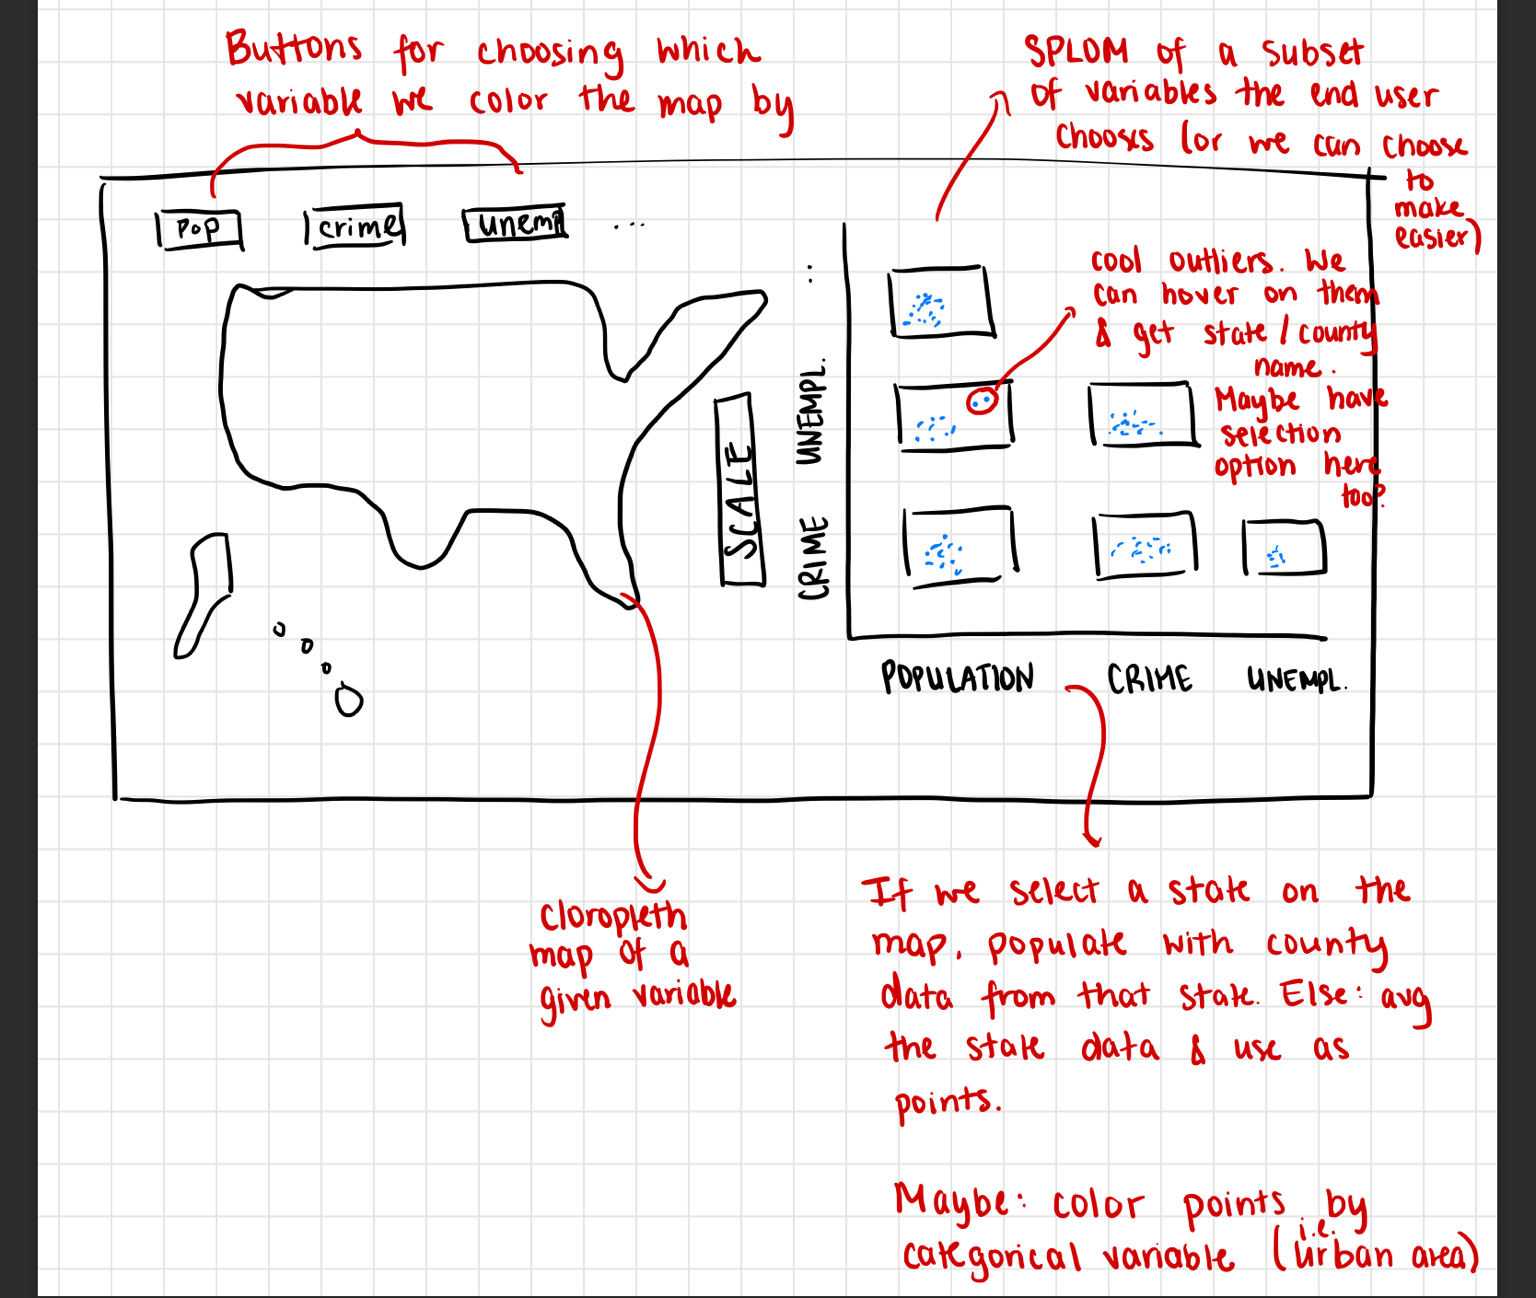 Buttons for choosing which
variable we color the map by
SPLOM of a subset
of variables the end user
chooses (or we can choose
to
make
easier)
Pop
crime
unemp
...
cool outliers. We
can hover on them
& get state / county
name.
Maybe have
selection
option here
too?
SCALE
CRIME UNEMPL. ...
POPULATION CRIME UNEMPL.
Cloropleth
map of a
given variable
If we select a state on the
map, populate with county
data from that state. Else: avg
the state data & use as
points.
Maybe: color points by
categorical variable (i.e. urban area)